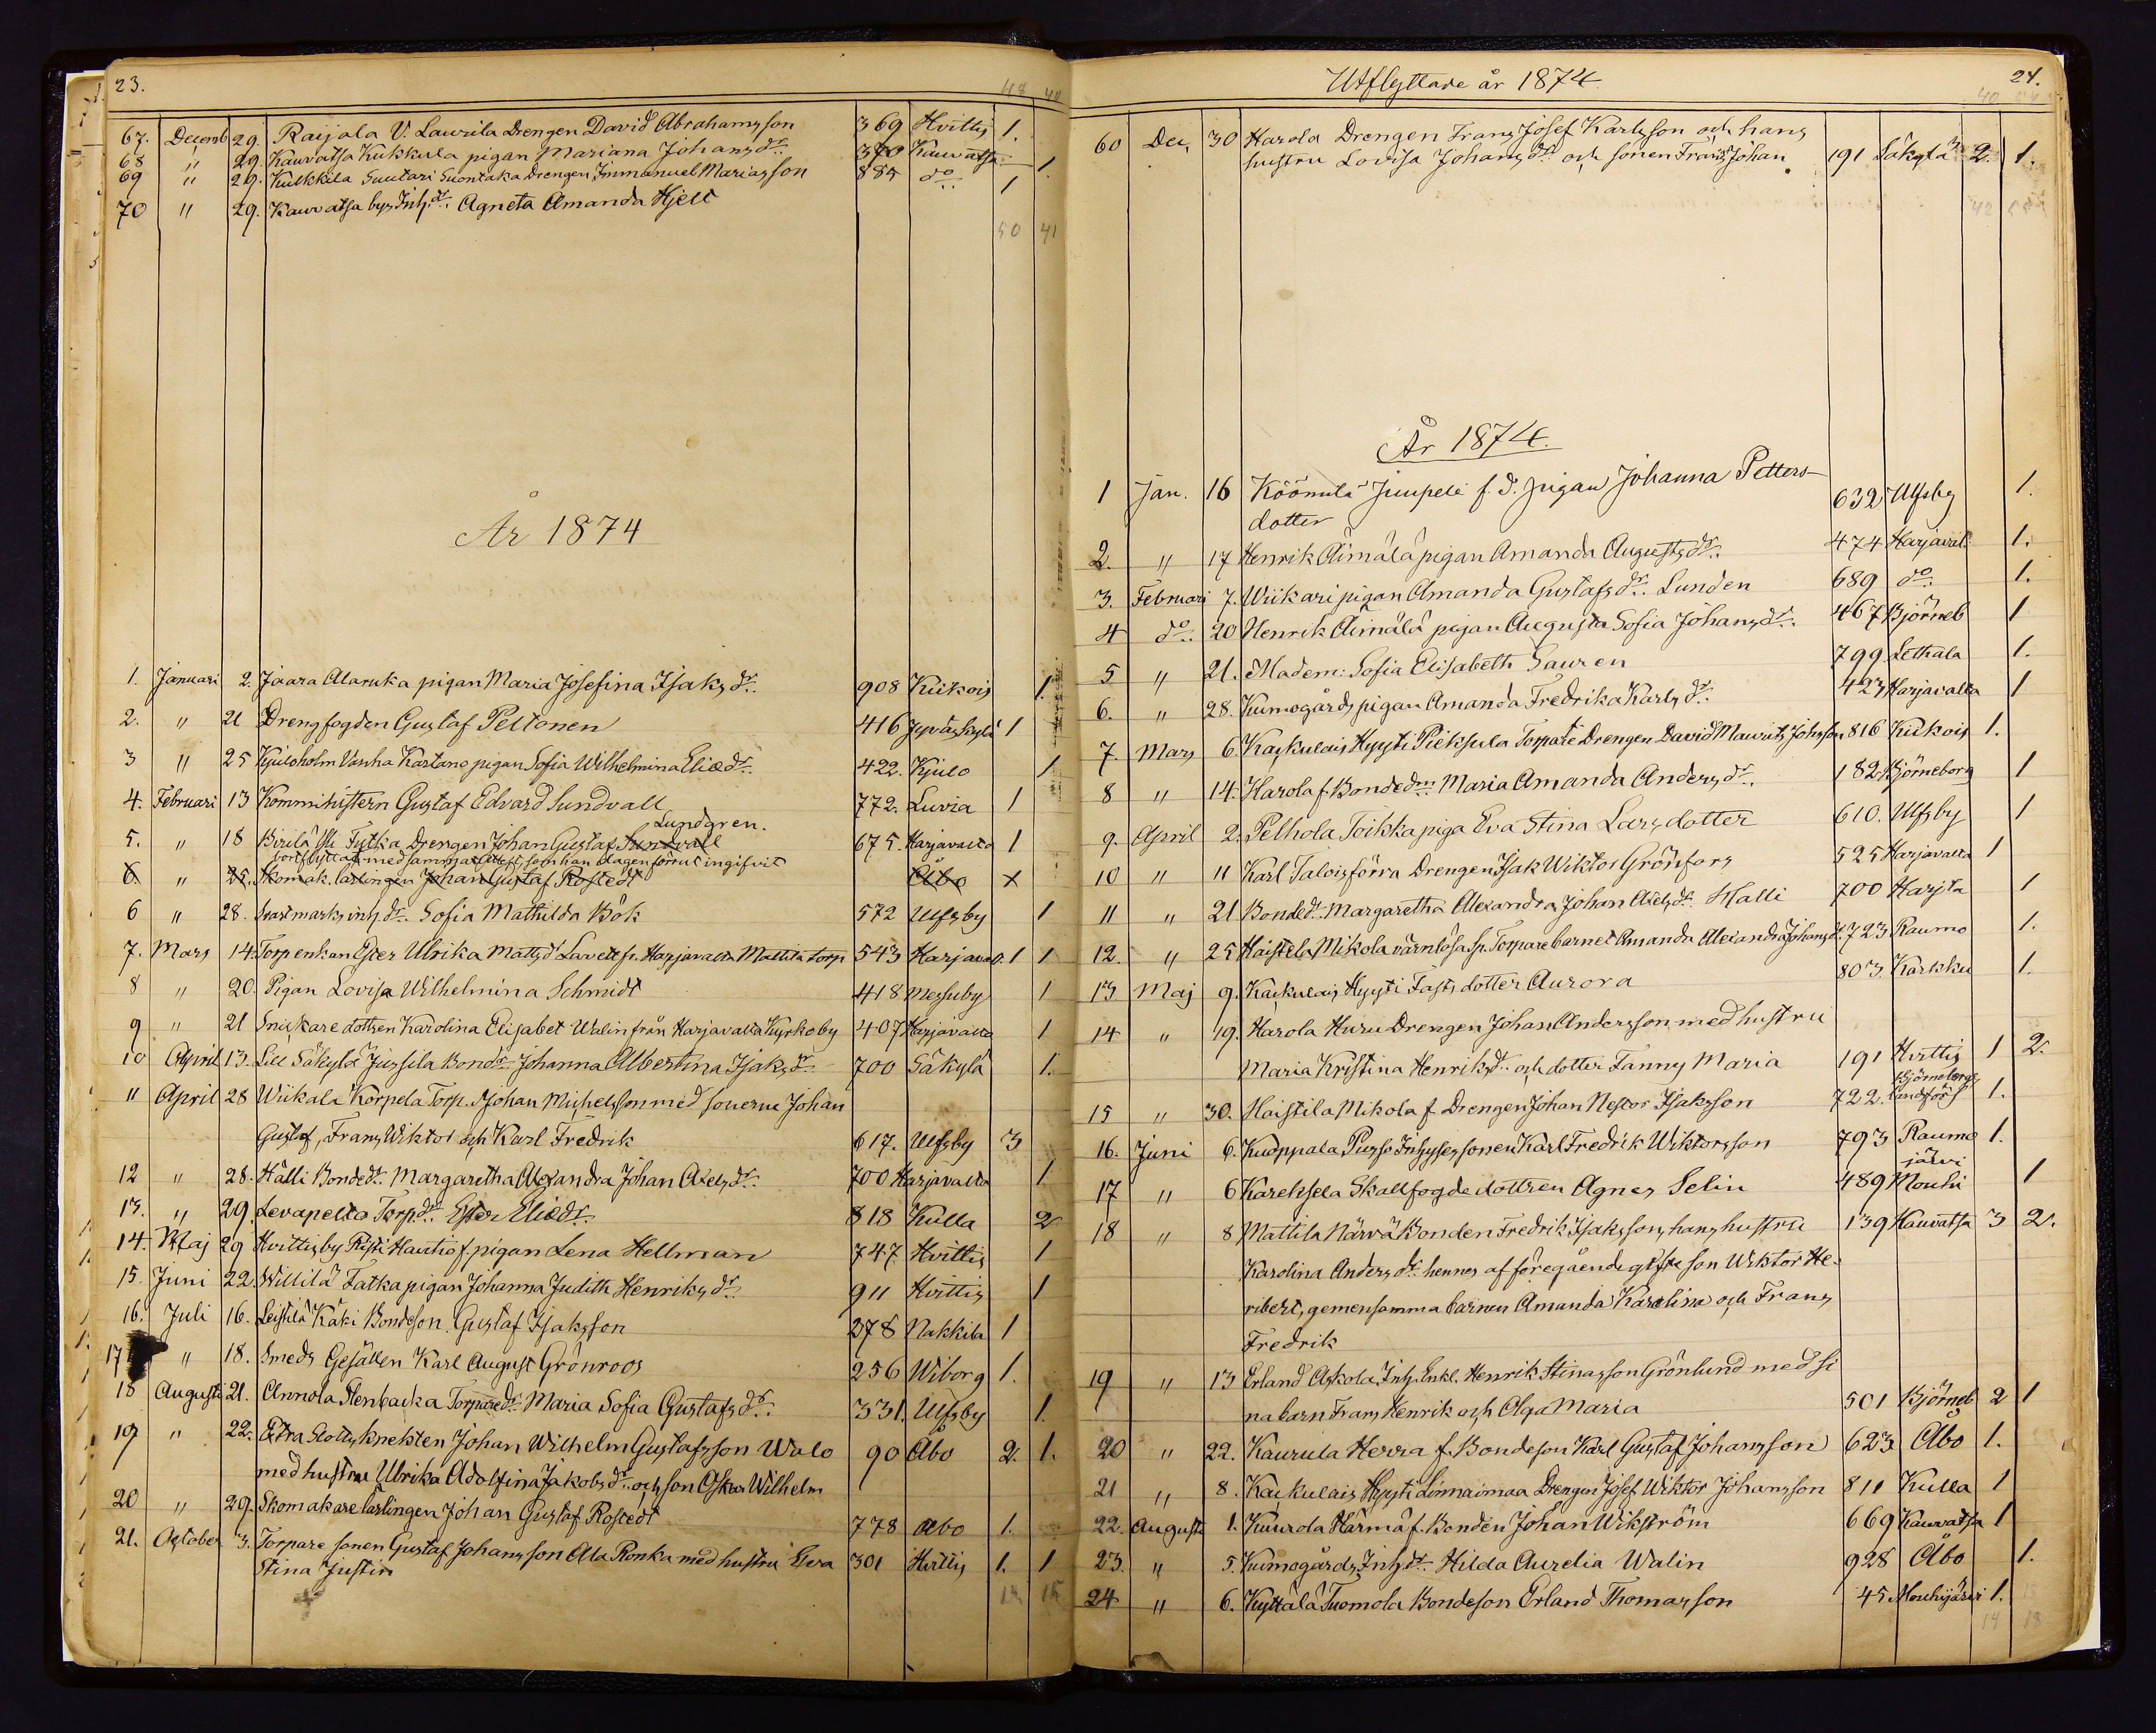 23.
48 40
67. Decemb 29. Raijala V. Laurila Drengen David Abrahamsson 369 Hvittis 1.
68 " 29. Kauvatsa Kukkula pigan Mariana Johansdr. 370 Kauvatsa 1
69 " 29. Kulkkila Suutari Suontaka Drengen Immanuel Mariasson 885 do. 1
70 " 29. Kauvatsa bys Inh.dr. Agneta Amanda Hjelt
50 41
År 1874
1. Januari 2. Jaara Alaruka pigan Maria Josefina Isaksdr. 908 Kiikois 1.
2. " 21 Drengfogden Gustaf Peltonen 416 Jyväskylä 1
3 " 25 Kjuloholm Vanha Kartano pigan Sofia Wilhelmina Eliædr. 422. Kjulo 1
4. Februari 13 Kommihistern Gustaf Edvard Sundvall 772. Luvia 1
Lundgren.
5. " 18 Birilä Yli Tutka Drengen Johan Gustaf Sundvall 675. Harjavalta 1
bortflyttat med samma attest, som han dagen förrut ingifvit
6. " 25. Skomak. lärlingen Johan Gustaf Rostedt Åbo x
6 " 28. Svartmarks inh.dr. Sofia Mathilda Bök 572 Ulfsby 1
7. Mars 14. Torpenkan Ester Ulrika Mattsdr Lavett fr. Harjavalta Mattila torp 543 Harjaval. 1 1
8 " 20. Pigan Lovisa Wilhelmina Schmidt 418 Messuby 1
9 " 21 Snickare dottren Karolina Elisabet Walin från Harjavalta Kyrkoby 407 Harjavalta 1
10 April 13. Lill Säkylä Jussila Bondr. Johanna Albertina Isaksdr. 700 Säkylä 1.
11 April 28 Wiikala Korpela Torp. Johan Michelsson med sönerne Johan
Gustaf, Frans Wiktor och Karl Fredrik 617. Ulfsby 3
12 " 28. Hälli Bondedr. Margaretha Alexandra Johan Axelsdr. 700 Harjavalta 1
13. " 29. Levapelto Torp.dr. Ester Eliædr. 818 Kulla 2
14. Maj 29 Hvittisby Risti Hautio f. pigan Lena Hellman 747. Hvittis 1
15. Juni 22. Willilä Tatka pigan Johanna Judith Henriksdr. 911 Hvittis 1
16. Juli 16. Leistilä Käki Bondeson Gustaf Isaksson 278 Nakkila 1
17 " 18. Smeds Gesällen Karl August Grönroos 256 Wiborg 1.
18 Augusti 21. Annola Stenbacka Torparedr. Maria Sofia Gustafsdr. 331. Ulfsby 1.
19 " 22. Extra Slottsknekten Johan Wilhelm Gustafsson Walo 90 Åbo 2. 1.
med hustru Ulrika Adolfina Jakobsdr. och son Oskar Wilhelm
20 " 29. Skomakare lärlingen Johan Gustaf Rostedt 778 Åbo 1.
21. October 3. Torpare sonen Gustaf Johansson Ala Ronka med hustru Eva 301 Hvittis 1. 1
Stina Justin
Utflyttade år 1874
24.
60 Dec. 30 Harola Drengen Frans Josef Karlsson och hans
hustru Lovisa Johansdr. och sonen Frans Johan 191 Säkylä 2. 1.
År 1874
1 Jan. 16 Köömilä Juupeli f.d. pigan Johanna Petters-
dotter 632 Ulfsby 1.
2. " 17 Henrik Äimälä pigan Amanda Augustsdr. 474 Harjaval. 1.
3. Februari 7. Wiikari pigan Amanda Gustafsdr. Lunden 689 do. 1.
4 do. 20 Henrik Äimälä pigan Augusta Sofia Johansdr. 467 Björneb 1
5 " 21. Madem: Sofia Elisabeth Sauren 799 Lethala 1.
6. " 28. Kumogårds pigan Amanda Fredrika Karlsdr. 423 Harjavalta 1
7. Mars 6. Kaskulais Hyyti Pieksula Torpare Drengen David Mauritz Johnsson 816 Kiikois 1.
8 " 14. Harola f. Bondedm. Maria Amanda Andersdr. 182 Björneborg 1
9. April 2. Pelhola Toikka piga Eva Stina Larsdotter 610. Ulfsby 1
10 " 11 Karl Talois förra Drengen Isak Wiktor Grönfors 525 Harjavalta 1
11 " 21 Bondedr. Margaretha Alexandra Johan Axelsdr. Halli 700 Harjta 1
12. " 25 Haistila Mikola värnlösa fr. Torparebarnet Amanda Alexandra Johansdr. 723 Raumo 1.
13 Maj 9. Kaskulais Hyyti Fasts dotter Aurora 803. Karkku 1.
14 " 19. Harola Huru Drengen Johan Andersson med hustru
Maria Kristina Henriksdr. och dotter Fanny Maria 191 Hvittis 1 2.
15 " 30. Haistila Mikola f. Drengen Johan Nestor Isaksson 722. Björneborgs landförs 1.
16. Juni 6. Kuoppala Pusso Inhyses sonen Karl Fredrik Wiktorsson 793 Raumo 1.
17 " 6 Kareksela Skallfogde dottren Agnes Selin 489 Mouhi järvi 1
18 " 8 Mattila Närvä Bonden Fredrik Isaksson, hans hustru 139 Kauvatsa 3 2.
Karolina Andersdr. hennes af föregående gifte son Wiktor He-
ribert, gemensamma barnen Amanda Karolina och Frans
Fredrik
19 " 13 Erland Askola Inh. Enkl. Henrik Stinasson Grönlund med si
na barn Frans Henrik och Olga Maria 501 Björneb 2 1
20 " 22. Kaurula Herra f. Bondeson Karl Gustaf Johansson 623 Åbo 1.
21 " 8. Kaskulais Hyyti Linnaimaa Drengen Josef Wiktor Johansson 811 Kulla 1
22. Augusti 1. Kuurola Härmä f. Bonden Johan Wikström 669 Kauvatsa 1
23. " 5. Kumogårds Inh.dr. Hilda Aurelia Walin 928 Åbo 1.
24 " 6. Kyttälä Tuomola Bondeson Erland Thomasson 45. Mouhijärvi 1.
14 18